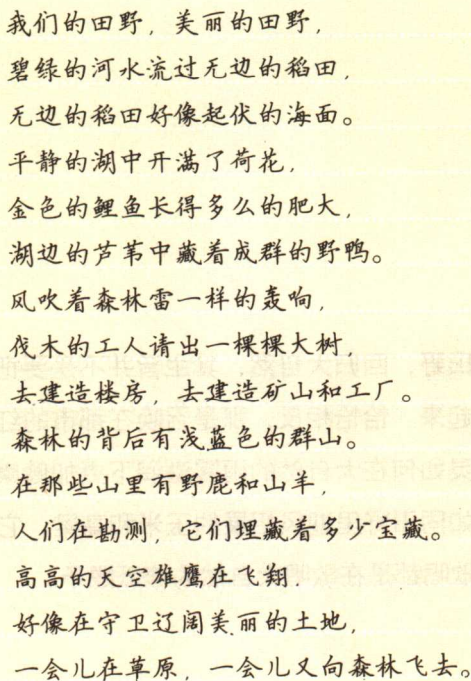 我们的田野，美丽的田野，
碧绿的河水流过无边的稻田，
无边的稻田好像起伏的海面。
平静的湖中开满了荷花，
金色的鲤鱼长得多么的肥大，
湖边的芦苇中藏着成群的野鸭。
风吹着森林雷一样的轰响，
伐木的工人请出一棵棵大树，
去建造楼房，去建造矿山和工厂。
森林的背后有浅蓝色的群山。
在那些山里有野鹿和山羊，
人们在勘测，它们埋藏着多少宝藏。
高高的天空雄鹰在飞翔，
好像在守卫辽阔美丽的土地，
一会儿在草原，一会儿又向森林飞去。